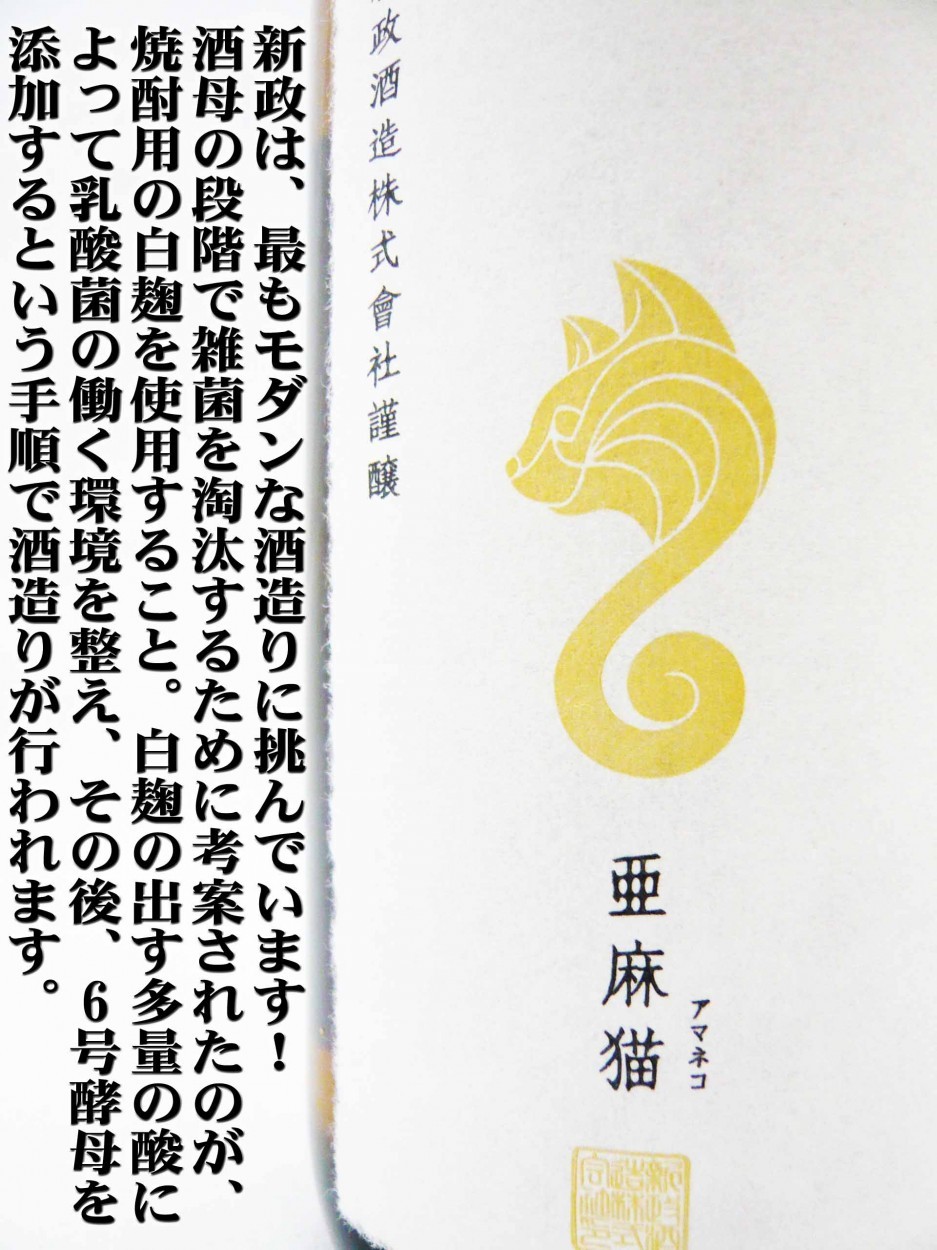 新政は、最もモダンな酒造りに挑んでいます！
酒母の段階で雑菌を淘汰するために考案されたのが、
焼酎用の白麹を使用すること。白麹の出す多量の酸に
よって乳酸菌の働く環境を整え、その後、６号酵母を
添加するという手順で酒造りが行われます。
政酒造株式會社謹醸
亜麻猫
アマネコ